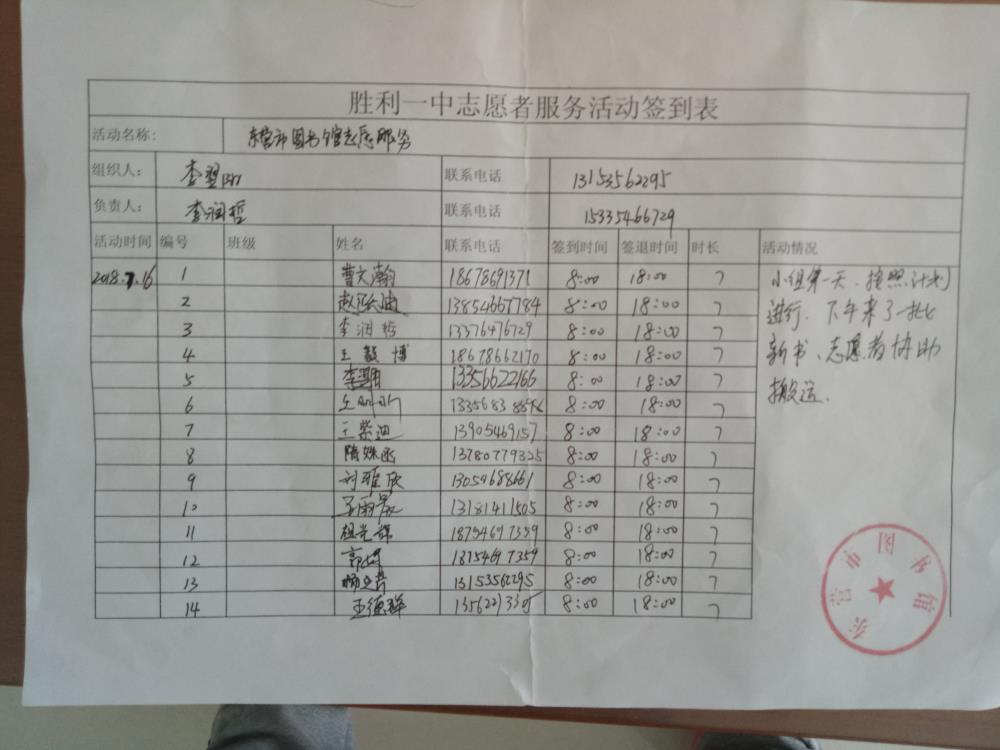 胜利一中志愿者服务活动签到表
活动名称: 东营市图书馆志愿服务
组织人: 联系电话 13153562295
负责人: 李润哲 联系电话 15335466729
活动时间 编号 班级 姓名 联系电话 签到时间 签退时间 时长 活动情况
2018.7.16 1 曹文瀚 18678691371 8:00 18:00 7 小组第一天、按照计划
2 13854667784 8:00 18:00 7 进行. 下午来了一批
3 李润哲 13376476729 8:00 18:00 7
4 王毅博 18678662170 8:00 18:00 7 新书、志愿者协助
5 13356622166 8:00 18:00 7 搬运.
6 8:00 18:00 7
7 王紫迪 13905469157 8:00 18:00 7
8 隋姝丞 13780779325 8:00 18:00 7
9 刘雅欣 13054688661 8:00 18:00 7
10 13181411505 8:00 18:00 7
11 祖光辉 18754697359 8:00 18:00 7
12 18754697359 8:00 18:00 7
13 13153562295 8:00 18:00 7
14 王德群 8:00 18:00 7
东营市图书馆